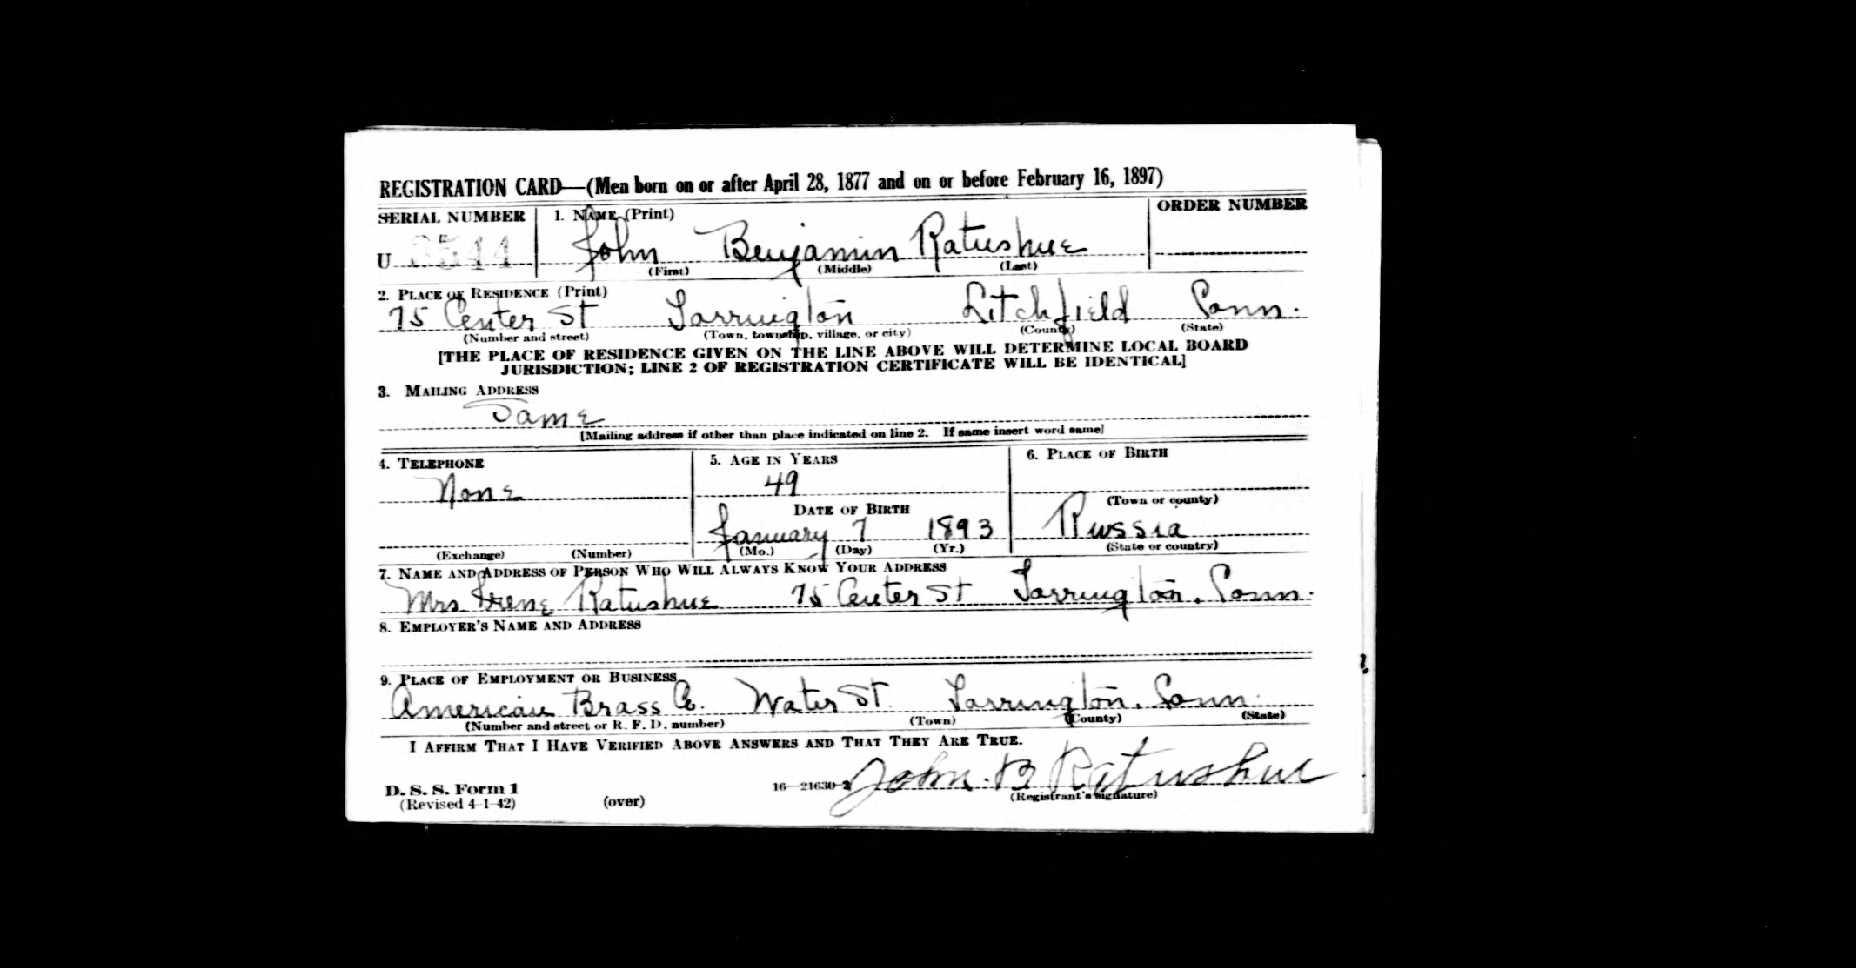 REGISTRATION CARD—(Men born on or after April 28, 1877 and on or before February 16, 1897)
SERIAL NUMBER 1. NAME (Print) ORDER NUMBER
U John Benjamin Ratushue
(First) (Middle) (Last)
2. PLACE OF RESIDENCE (Print)
75 Center St Torrington Litchfield Conn.
(Number and street) (Town, township, village, or city) (County) (State)
[THE PLACE OF RESIDENCE GIVEN ON THE LINE ABOVE WILL DETERMINE LOCAL BOARD
JURISDICTION; LINE 2 OF REGISTRATION CERTIFICATE WILL BE IDENTICAL]
3. MAILING ADDRESS
Same
[Mailing address if other than place indicated on line 2. If same insert word same]
4. TELEPHONE 5. AGE IN YEARS 6. PLACE OF BIRTH
None 49
(Town or county)
DATE OF BIRTH
January 7 1893 Russia
(Exchange) (Number) (Mo.) (Day) (Yr.) (State or country)
7. NAME AND ADDRESS OF PERSON WHO WILL ALWAYS KNOW YOUR ADDRESS
Mrs Irene Ratushue 75 Center St Torrington. Conn.
8. EMPLOYER'S NAME AND ADDRESS
9. PLACE OF EMPLOYMENT OR BUSINESS
American Brass Co. Water St. Torrington. Conn.
(Number and street or R. F. D. number) (Town) (County) (State)
I AFFIRM THAT I HAVE VERIFIED ABOVE ANSWERS AND THAT THEY ARE TRUE.
D. S. S. Form 1 16—21630-2 John B Ratushue
(Revised 4-1-42) (over) (Registrant's signature)